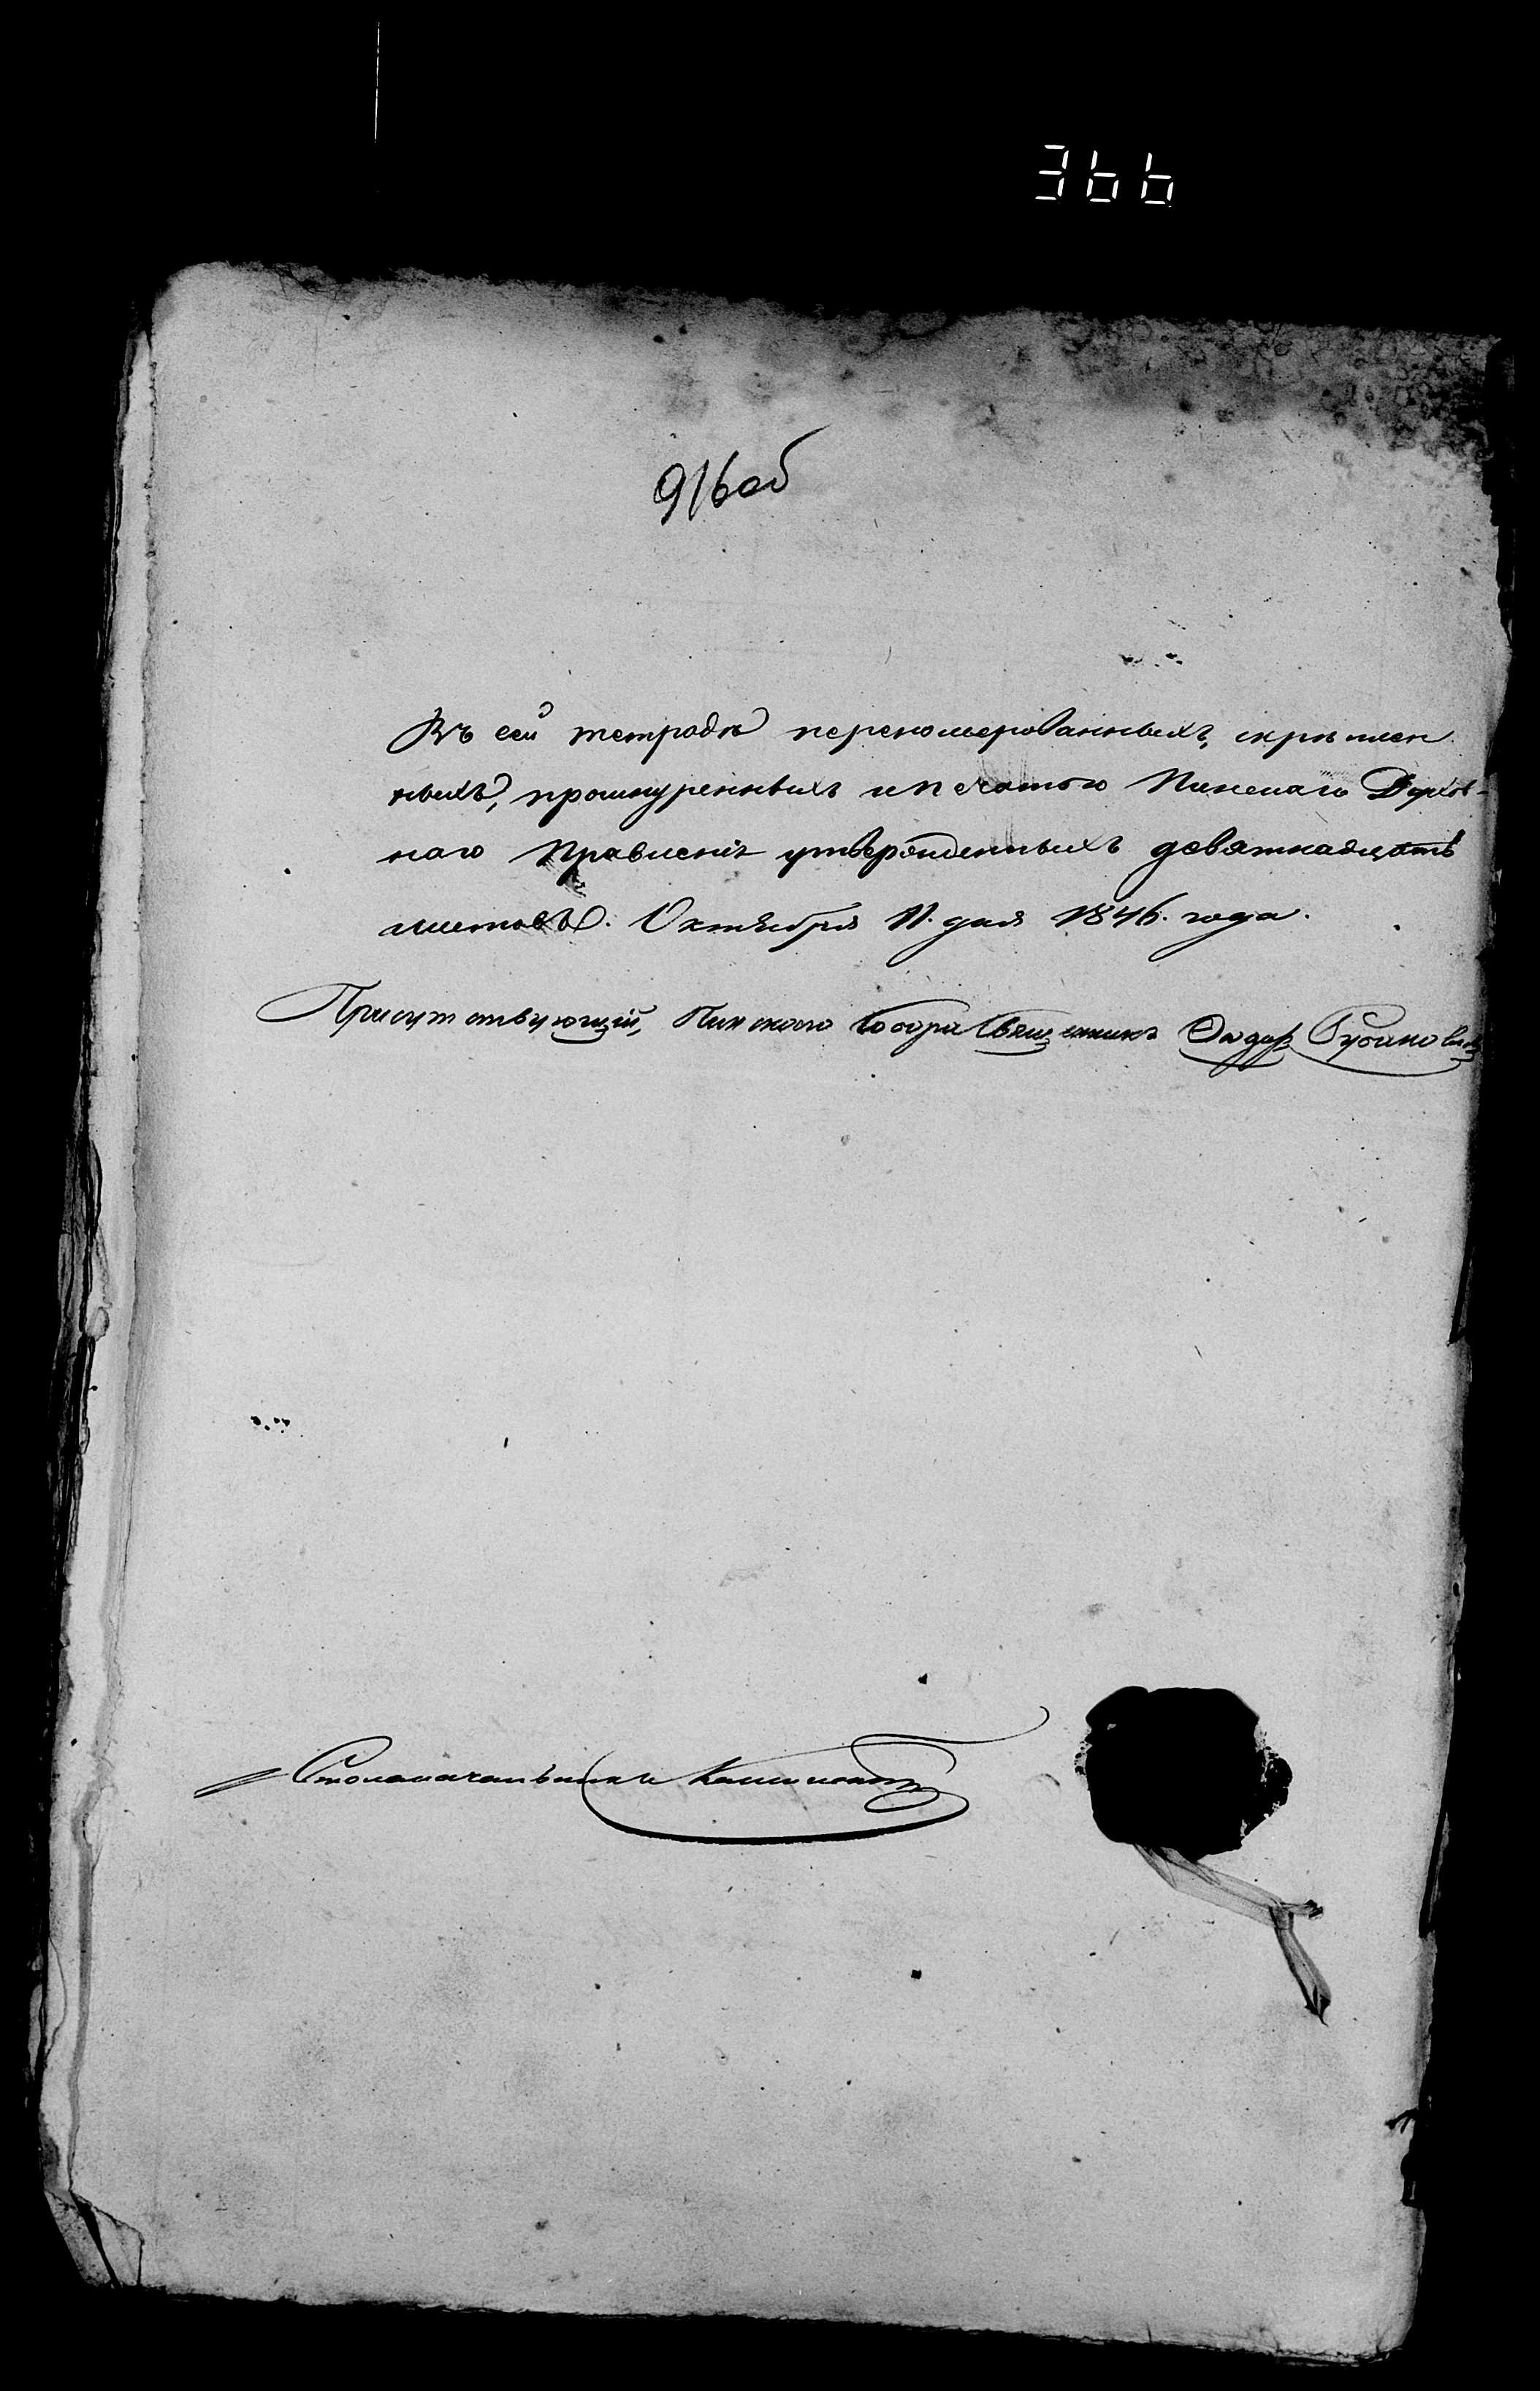 366
916об
Въ сей тетрадѣ перекомерованныхъ, скрѣплен
ныхъ, прошнуренныхъ и печатью Пинскаго Духов-
наго Правленія утвержденныхъ девятнадцать
листовъ. Октября 11. дня 1846. года.
Присутствующій, Пинскаго Собора Священникъ Федоръ
Столоначальникъ